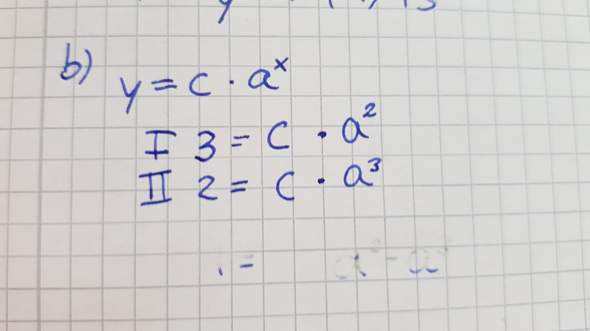 b)
y = c · aˣ
I 3 = c · a²
II 2 = c · a³